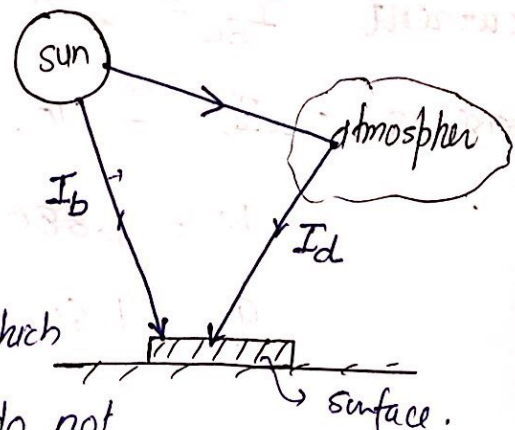 sun
atmospher
I_b
I_d
hich
surface.
do not